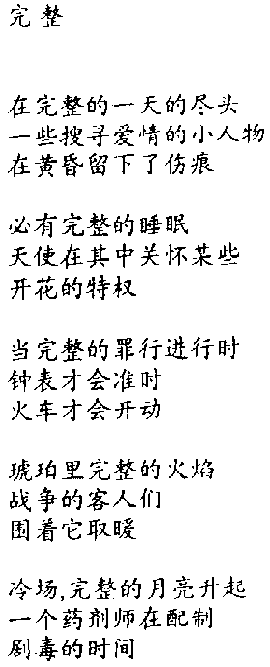 完整
在完整的一天的尽头
一些搜寻爱情的小人物
在黄昏留下了伤痕
必有完整的睡眠
天使在其中关怀某些
开花的特权
当完整的罪行进行时
钟表才会准时
火车才会开动
琥珀里完整的火焰
战争的客人们
围着它取暖
冷场,完整的月亮升起
一个药剂师在配制
剧毒的时间